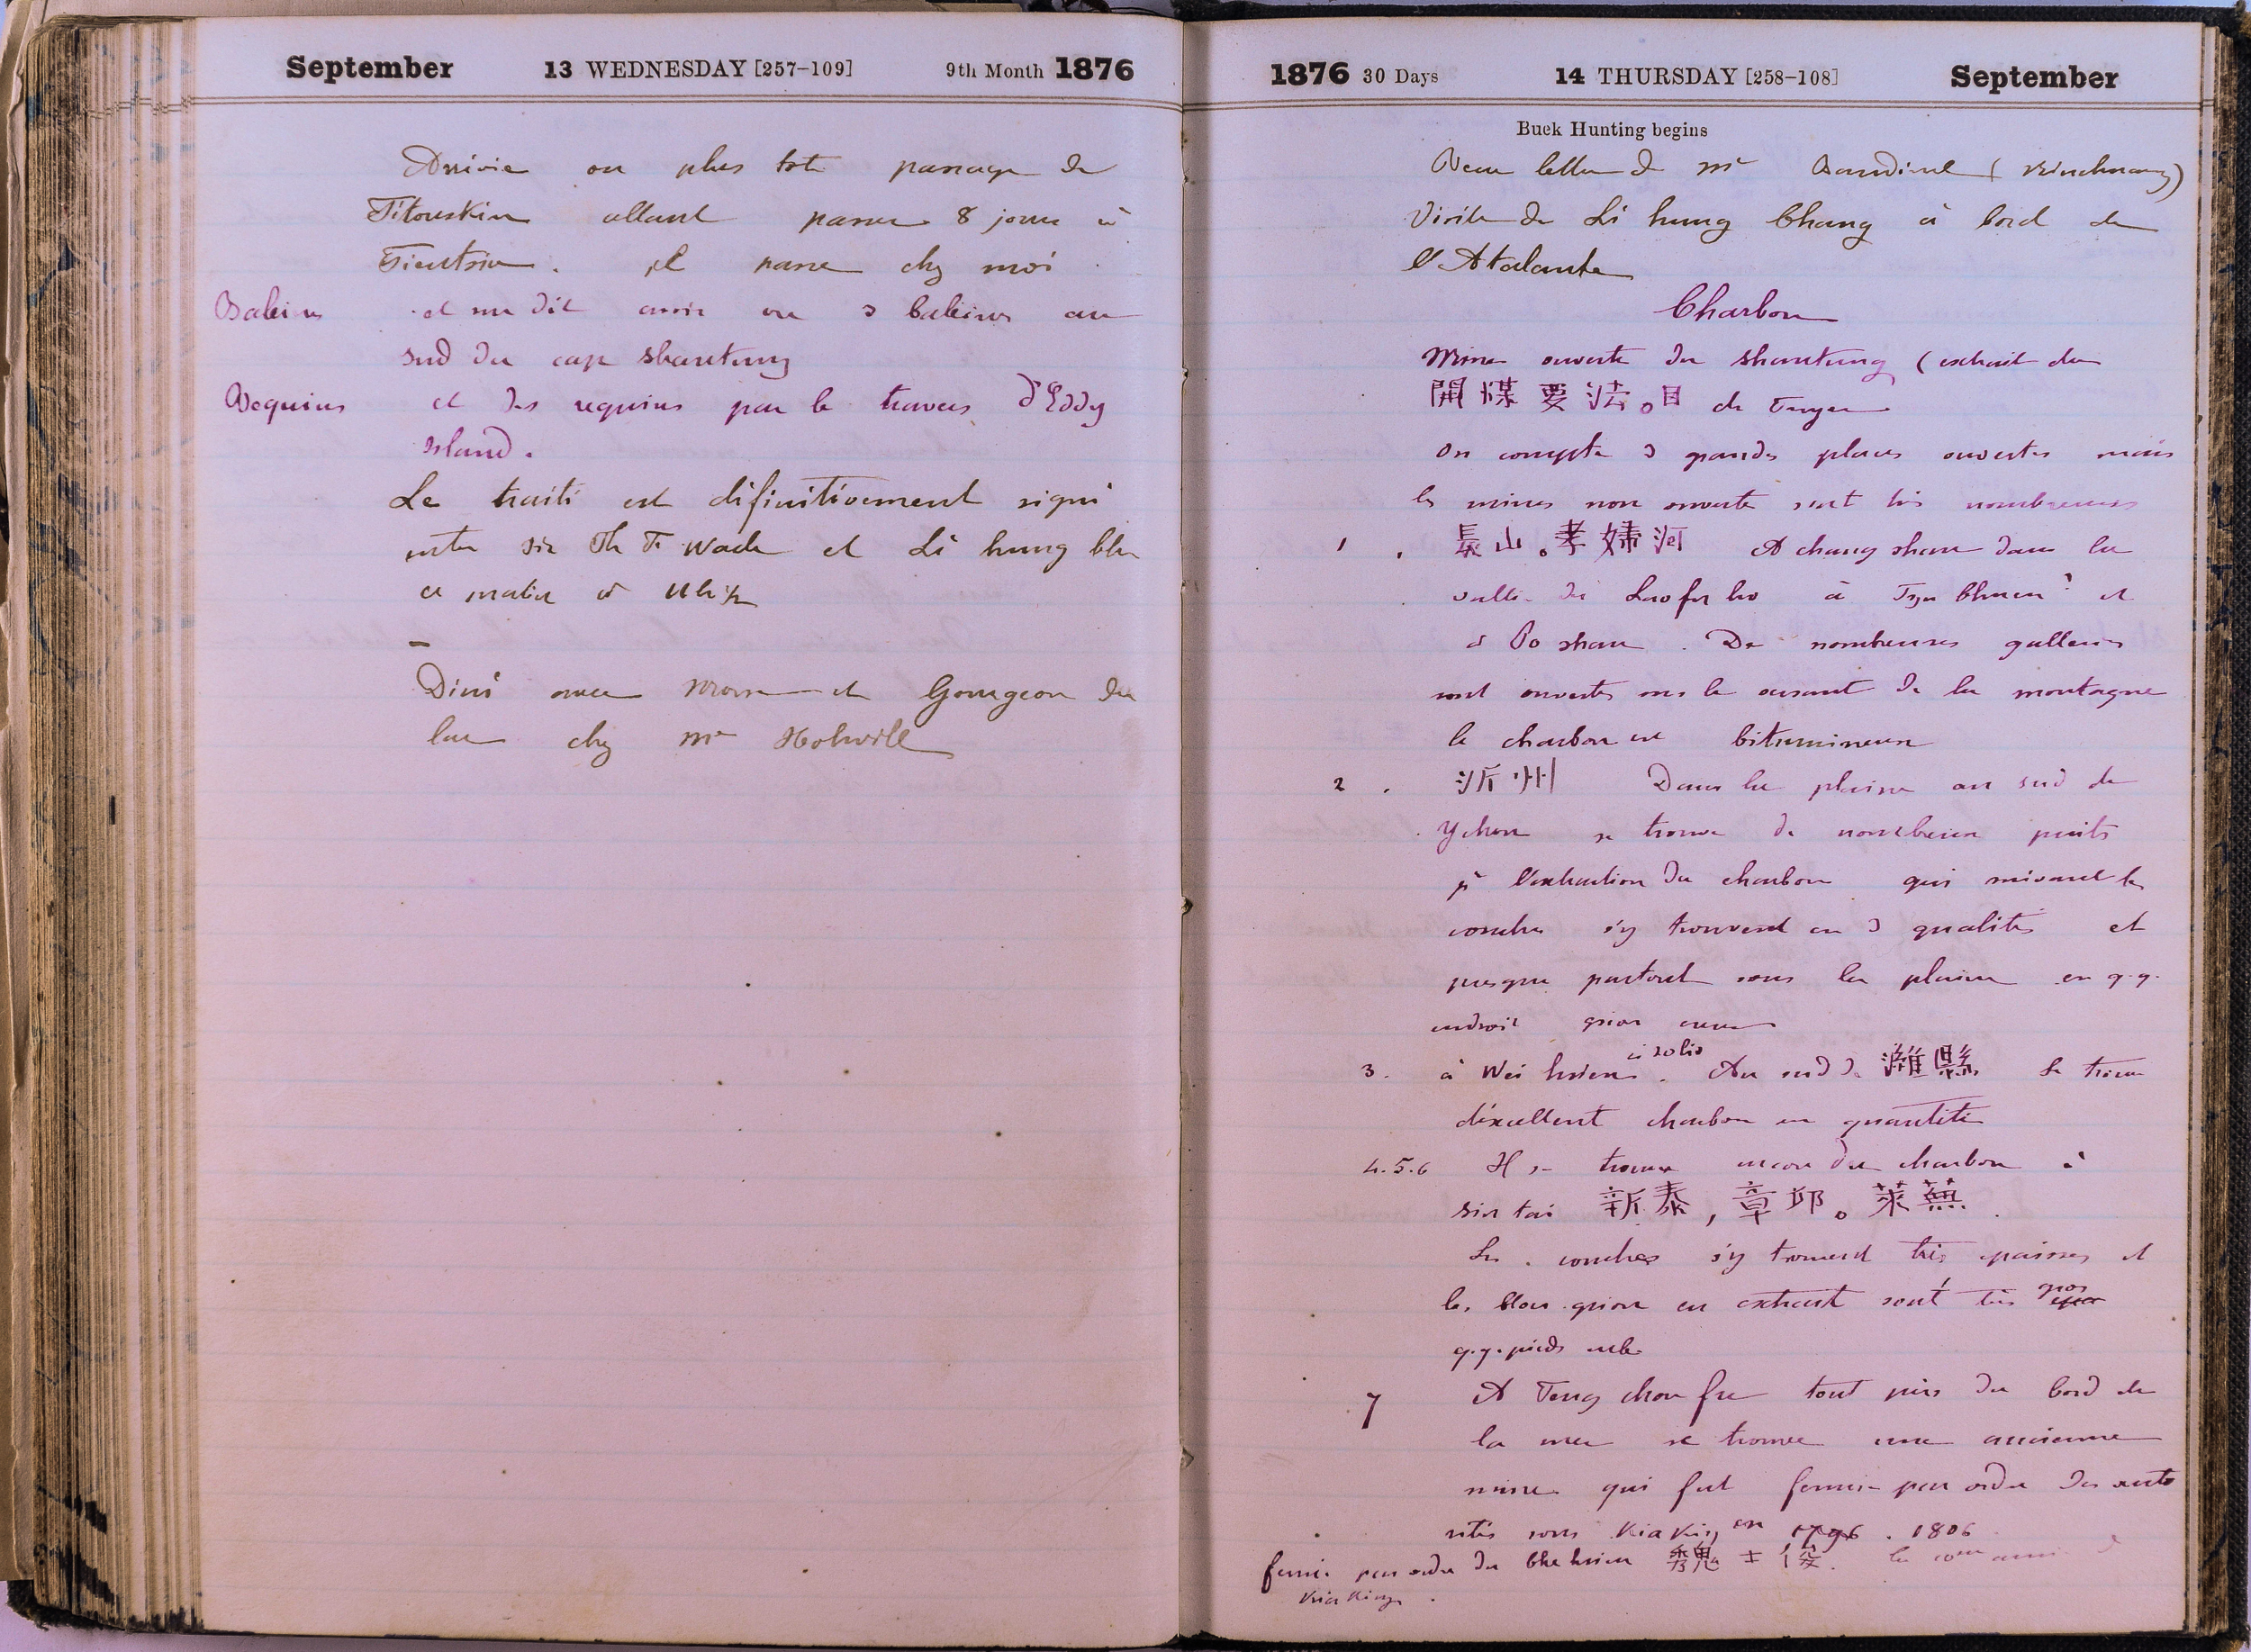 September 13 WEDNESDAY [257-109] 9th Month 1876
Arrivée ou plus tôt passage de
Titouskin allant passer 8 jours à
Tientsin. il passe chez moi
Baleines et me dit avoir vu 3 baleines au
sud du cap Shantung
Requins et des requins par le travers d'Eddy
Island.
Le traité est définitivement signé
entre Sir Th F. Wade et Li hung Ch
ce matin à
Diné avec et Gourgeon du
chez Mr Holwill
1876 30 Days 14 THURSDAY [258-108] September
Buck Hunting begins
Reçu lettre de Mr
Visite de Li hung Chang à bord de
l'Atalante
Charbon
Mines ouvertes du Shantung (extrait du
開煤要法。目 de Fryer
On compte 3 grandes places ouvertes mais
les mines non ouvertes sont très nombreuses
1. 長山。孝婦河 A chang shan dans la
vallée du Laofuho à Tzu Chuen et
à Po shan. De nombreuses galleries
sont ouvertes sous le versant de la montagne
le charbon est bitumineux
2. 沂州 Dans la plaine au sud de
Ychou se trouve de nombreux puits
pr l'extraction du charbon qui suivant les
couches s'y trouvent en 3 qualités et
presque partout sous la plaine en q.q.
endroit qu'on creuse
3. à Wei hsien à 20 lis. Au sud de 濰縣 se trouve
d'excellent charbon en quantité
4.5.6 Il se trouve encore du charbon à
Sin tai 新泰, 章邱。萊蕪.
Les couches s'y trouvent très épaisses et
les blocs qu'on en extrait sont très gros
q.q. pieds cube
7 A Teng chou fu tout près du bord de
la mer se trouve une ancienne
mine qui fut fermée par ordre des auto
rités sous Kia King en 1796. 1806
fermée par ordre du Che hsien
Kia King.